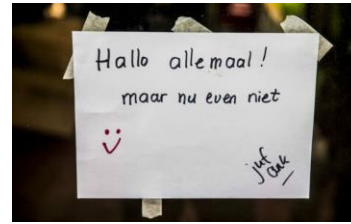 Hallo allemaal!
maar nu even niet
juf